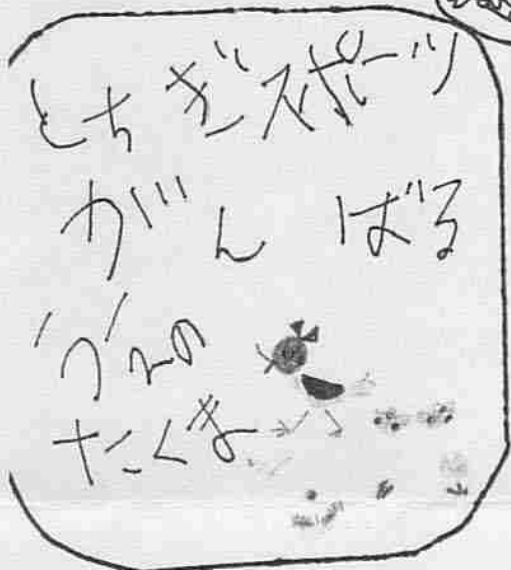 とちぎスポーツ
がんばる
たくま